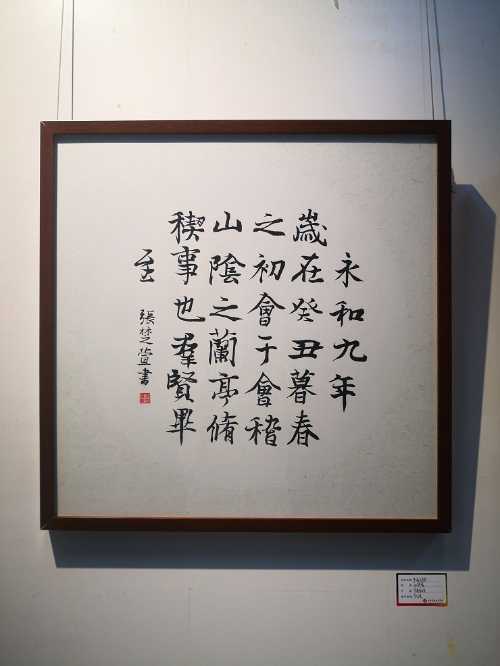 永和九年
歲在癸丑暮春
之初會于會稽
山陰之蘭亭脩
稧事也羣賢畢
至
張楚書